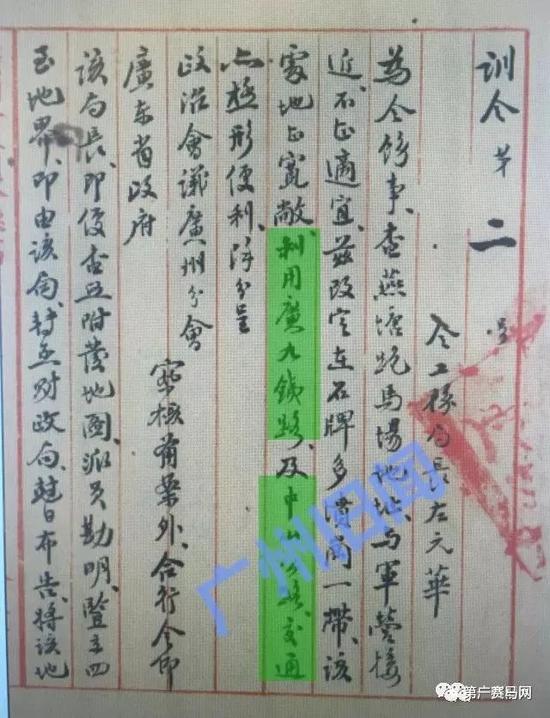 训令 第二号
令工务局局長左元華
為令飭事、查燕塘跑馬場地址、与軍營接
近、不甚適宜、茲改定在石牌多濱崗一帶、該
處地甚寬敞、利用廣九鉄路、及中山公路、交通
亦極形便利、除分呈
政治會議廣州分會
廣东省政府
察核備案外、合行令仰
該局長、即便查照附發地圖、派員勘明、豎立四
至地界、即由該局、轉函財政局、尅日布告、将該地
广州旧闻
第一广赛马网